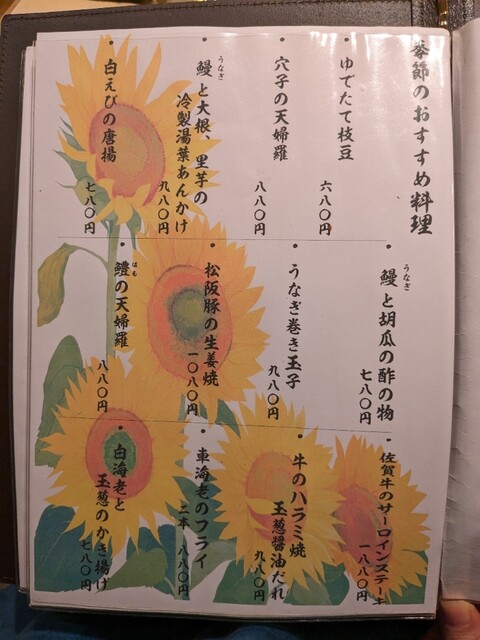 季節のおすすめ料理
・ゆでたて枝豆
六八〇円
・穴子の天婦羅
八八〇円
・鰻と大根、里芋の
うなぎ
冷製湯葉あんかけ
九八〇円
・白えびの唐揚
七八〇円
・鰻と胡瓜の酢の物
うなぎ
七八〇円
・うなぎ巻き玉子
九八〇円
・松阪豚の生姜焼
一〇八〇円
・鱧の天婦羅
はも
八八〇円
・佐賀牛のサーロインステーキ
一八八〇円
・牛のハラミ焼
玉葱醤油だれ
九八〇円
・車海老のフライ
二本 八八〇円
・白海老と
玉葱のかき揚げ
七八〇円